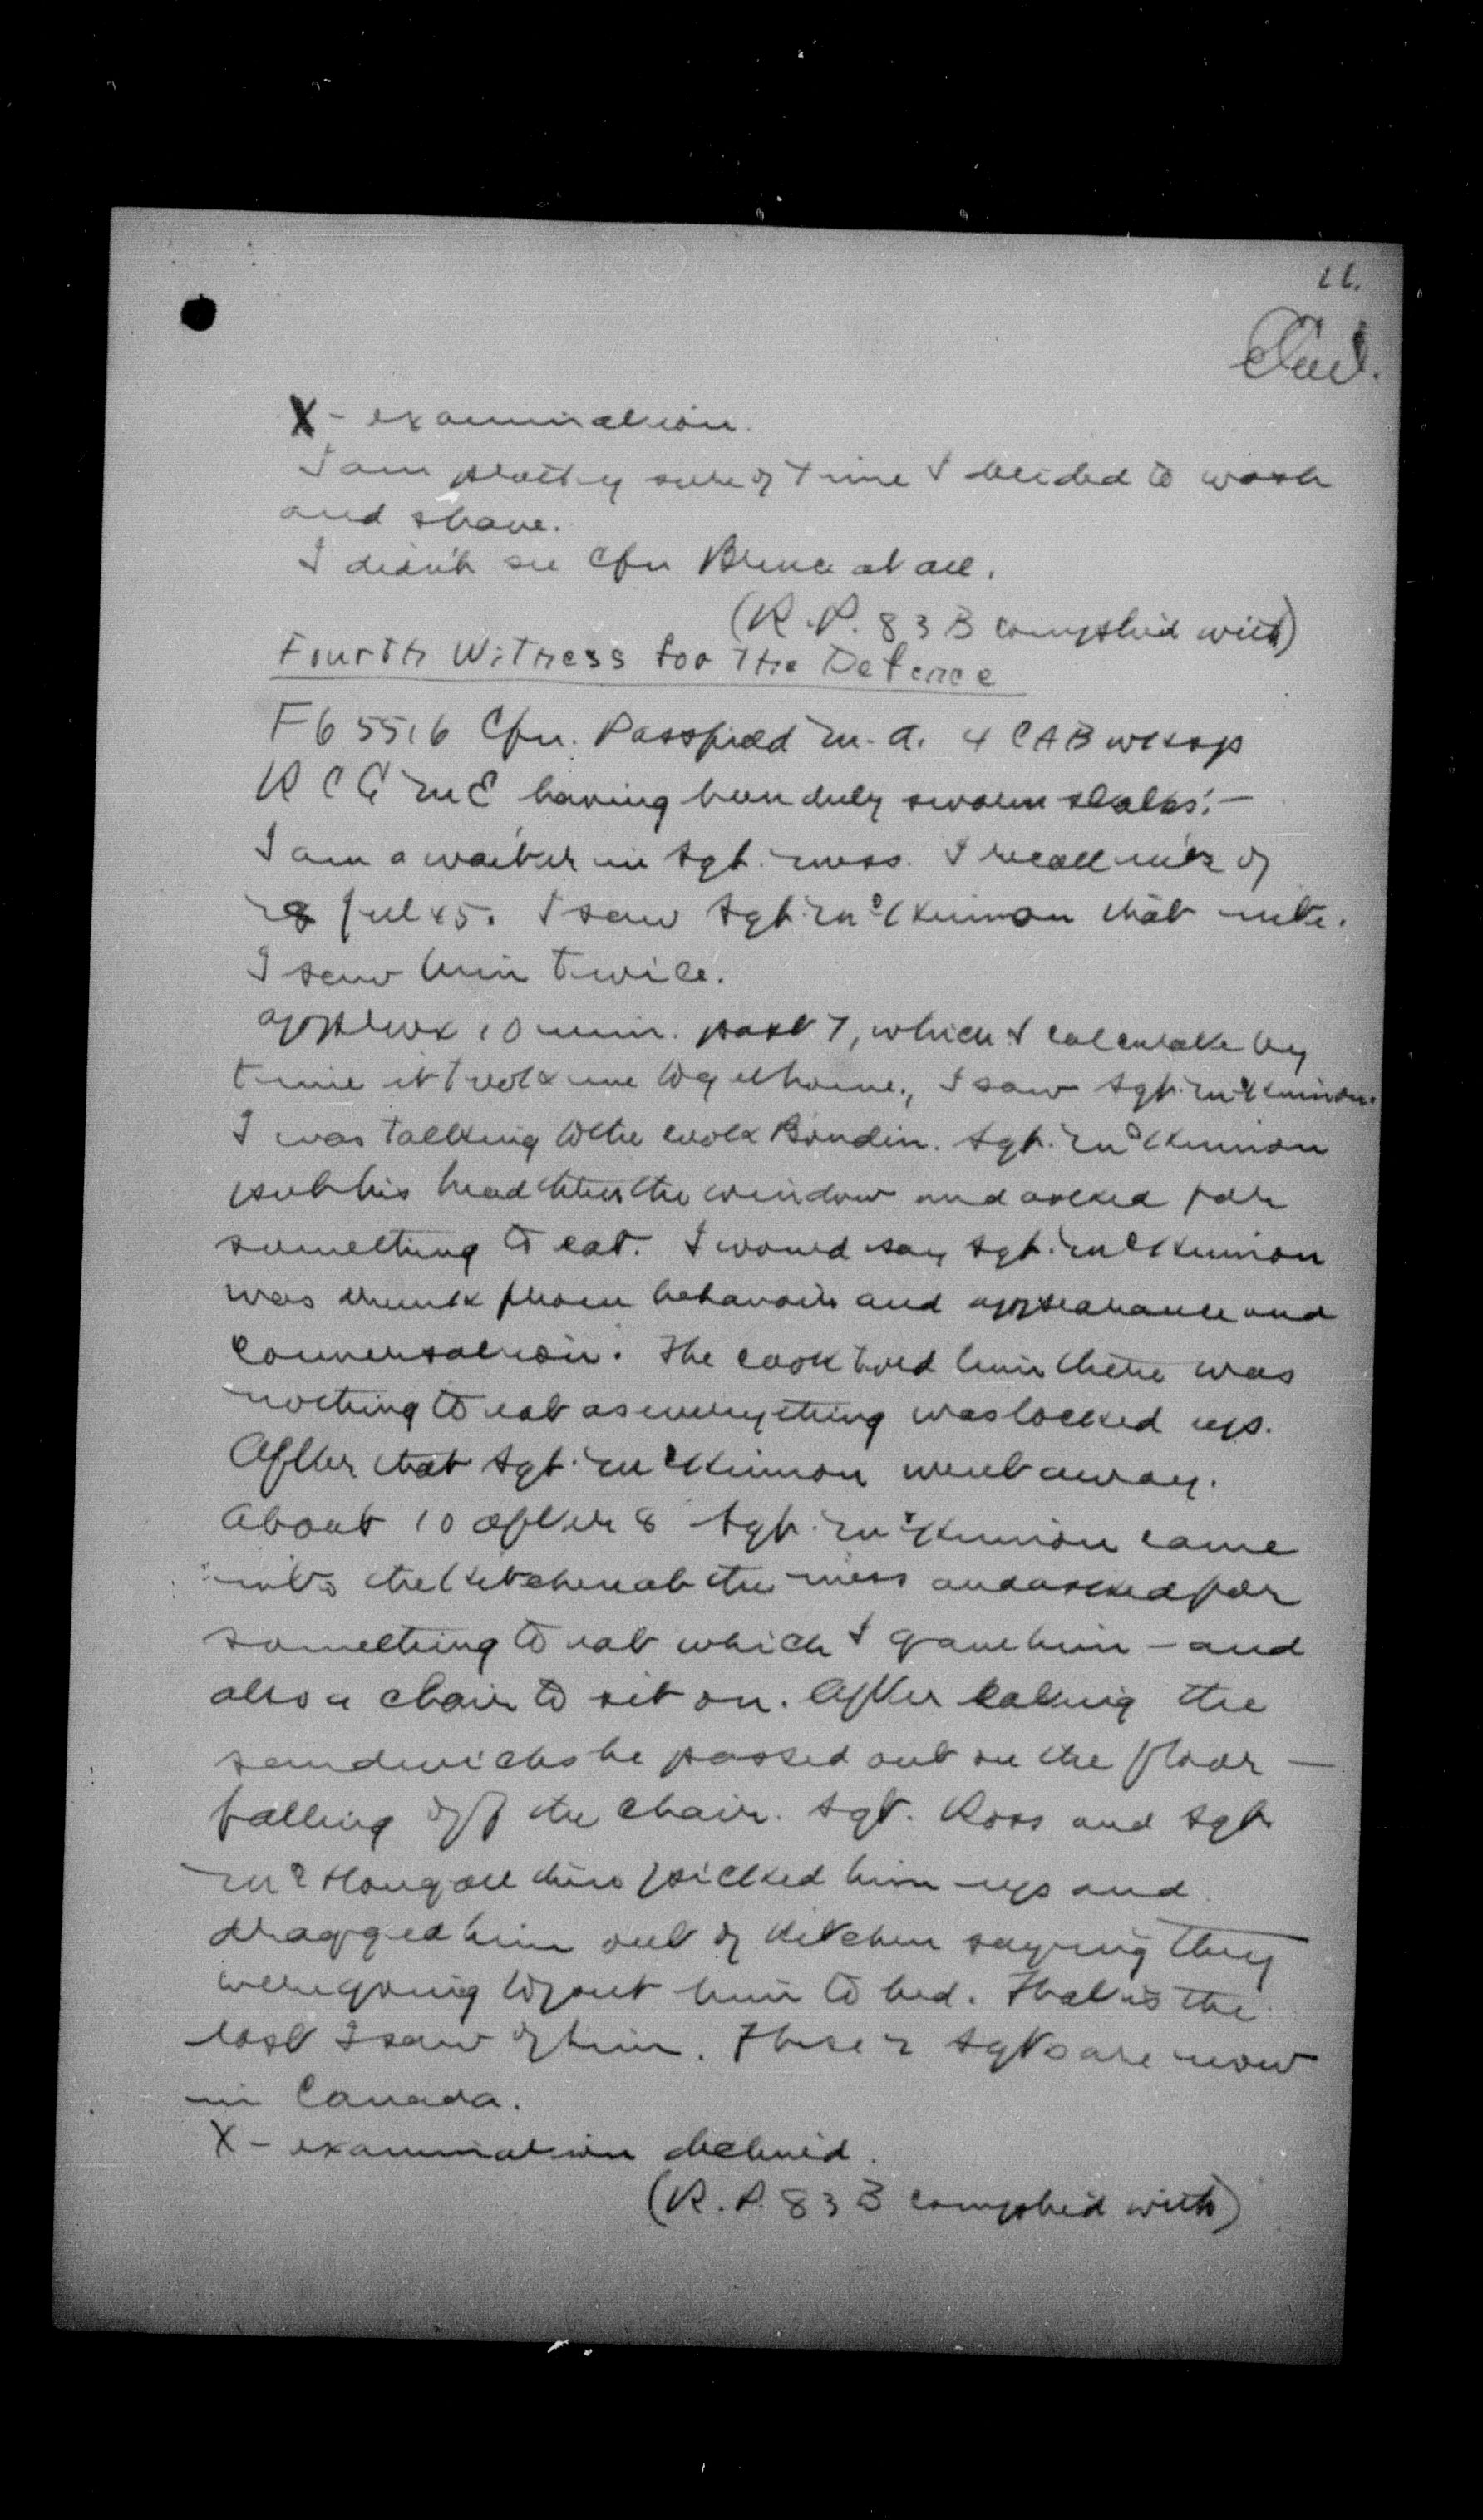 X - examination.
I am pretty sure of time I decided to wash
and shave.
I didn't see Cfn Bruce at all.
(R.P. 83 B complied with)
Fourth Witness for The Defence
F65516 Cfn. Passfield M.A. 4 CAB wksp
RCEME having been duly sworn states:-
I am a waiter in Sgt. mess. I recall nite of
28 Jul 45. I saw Sgt. McKinnon that nite.
I saw him twice.
approx 10 min. past 7, which I calculate by
time it took me to get home, I saw Sgt. McKinnon.
I was talking to the cook Boudin. Sgt. McKinnon
put his head thru the window and asked for
something to eat. I would say Sgt. McKinnon
was drunk from behavour and appearance and
conversation. The cook told him there was
nothing to eat as everything was locked up.
After that Sgt. McKinnon went away.
About 10 after 8 Sgt. McKinnon came
into the kitchen at the mess and asked for
something to eat which I gave him - and
also a chair to sit on. After eating the
sandwichs he passed out on the floor -
falling off the chair. Sgt. Ross and Sgt
McDougall then picked him up and
dragged him out of kitchen saying they
were going to put him to bed. That is the
last I saw of him. These 2 Sgts are now
in Canada.
X - examination declined.
(R.P. 83 B complied with)